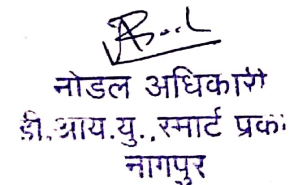 नोडल अधिकारी
डी.आय.यु.,स्मार्ट प्रक
नागपुर